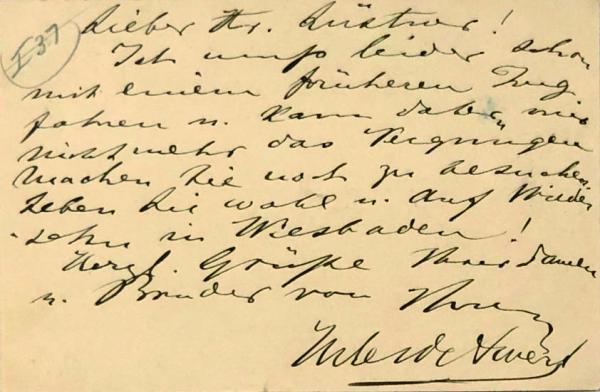 I 37
Lieber Hr. Küstner!
Ich muß leider schon
mit einem früheren Zug
fahren u. kann daher mir
nicht mehr das Vergnügen
machen Sie noch zu besuchen.
Leben Sie wohl u. Auf Wieder
-sehn in Wiesbaden!
Herzl. Grüße Ihren Damen
u. Bruder von Ihrem